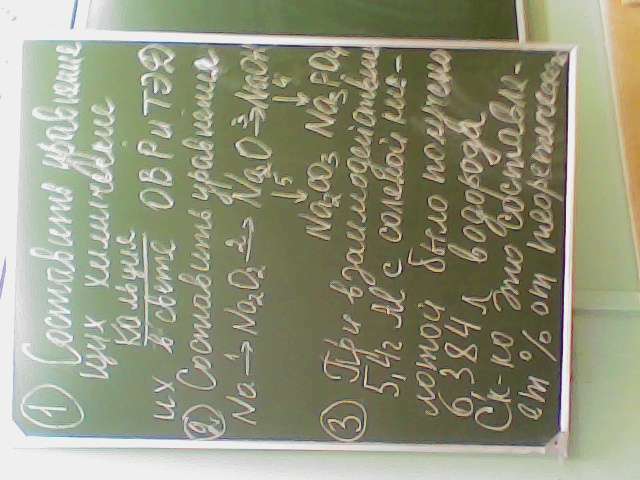 1 Составить уравнение
щих химические
кальция
их в свете ОВР и ТЭД
2. Составить уравнения
Na 1→ Na₂O₂ 2→ Na₂O 3→ NaOH
↓5 ↓4
Na₂CO₃ Na₃PO₄
3 При взаимодействии
5,4г Al с соляной кис-
лотой было получено
6,384 л водорода
Ск-ко это составля-
ет % от теоретическ